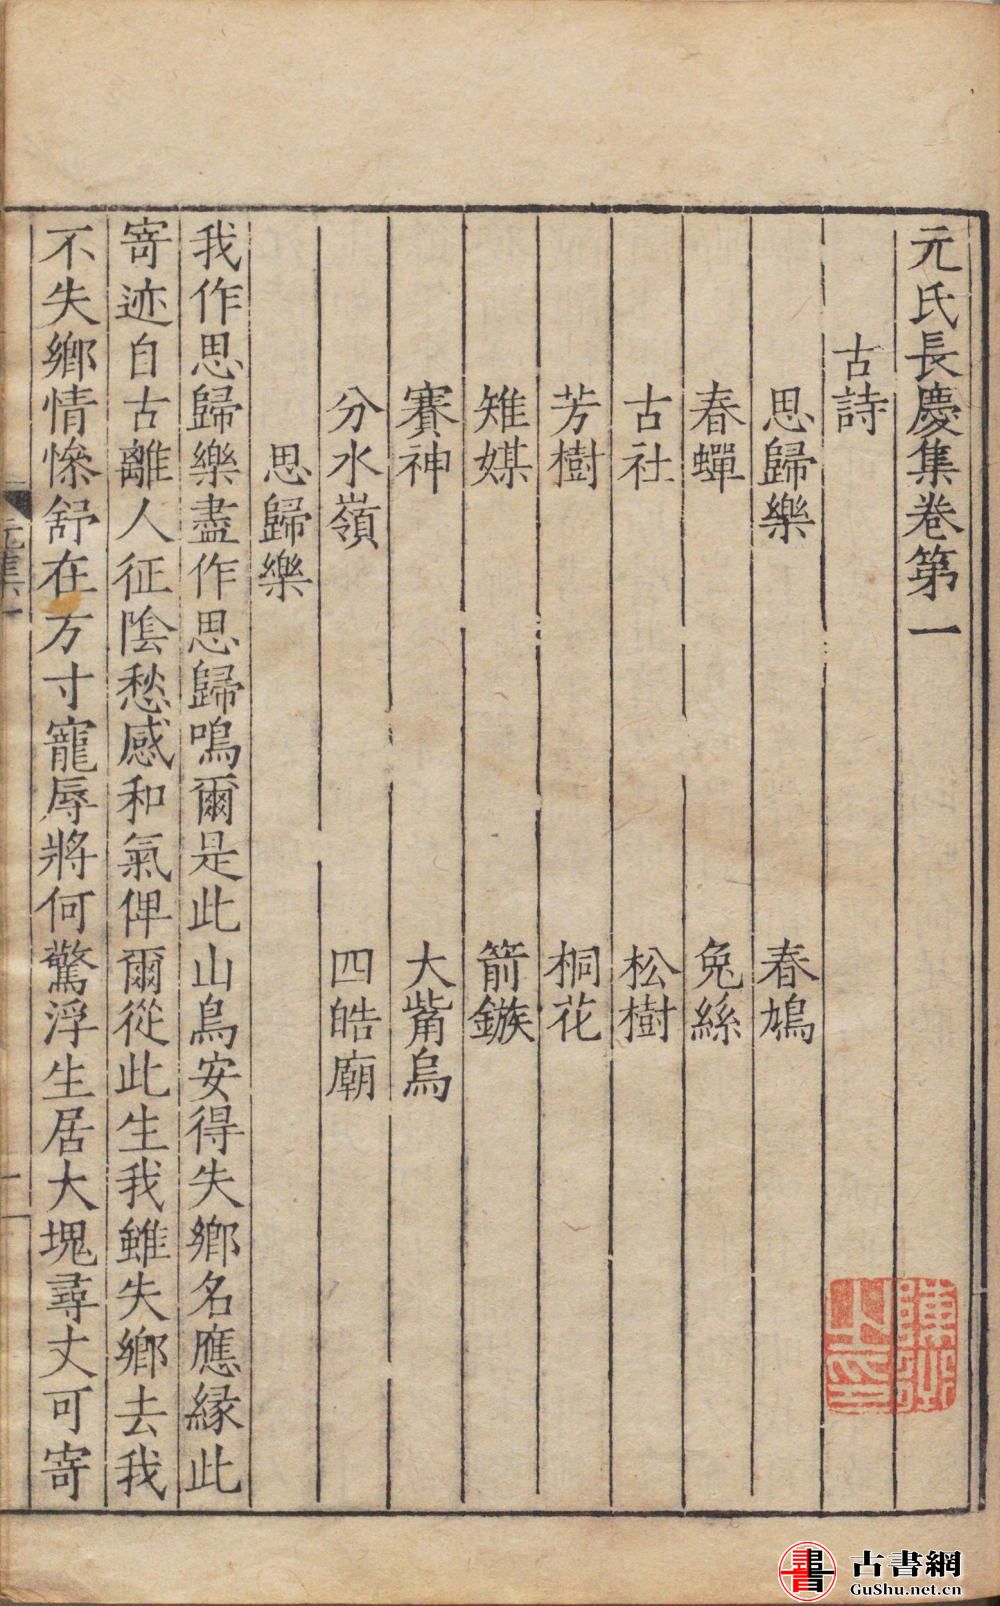 元氏長慶集卷第一
古詩
思歸樂　春鳩
春蟬　兔絲
古社　松樹
芳樹　桐花
雉媒　箭鏃
賽神　大觜烏
分水嶺　四皓廟
思歸樂
我作思歸樂盡作思歸鳴爾是此山鳥安得失鄉名應緣此
寄迹自古離人征陰愁感和氣俾爾從此生我雖失鄉去我
不失鄉情慘舒在方寸寵辱將何驚浮生居大塊尋丈可寄
元集一
古書網
GuShu.net.cn